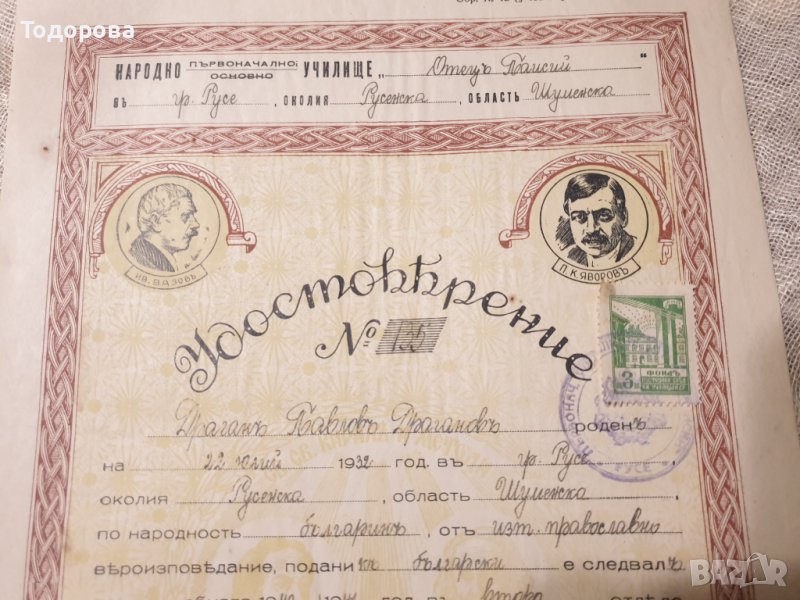 Тодорова
НАРОДНО ПЪРВОНАЧАЛНО УЧИЛИЩЕ „Отецъ Паисий“
ОСНОВНО
въ гр. Русе, ОКОЛИЯ Русенска, ОБЛАСТЬ Шуменска
ИВ. ВАЗОВЪ
П. К. ЯВОРОВЪ
Удостовѣрение
№ 135
3
ФОНДЪ
РУСЕ
Драганъ Павловъ Драгановъ роденъ
на 22 юлий 1932 год. въ гр. Русе
околия Русенска, область Шуменска,
по народность българинъ, отъ изт. православно
вѣроизповѣдание, подани къ български е следвалъ
год. въ втора отдѣле
BAZAR